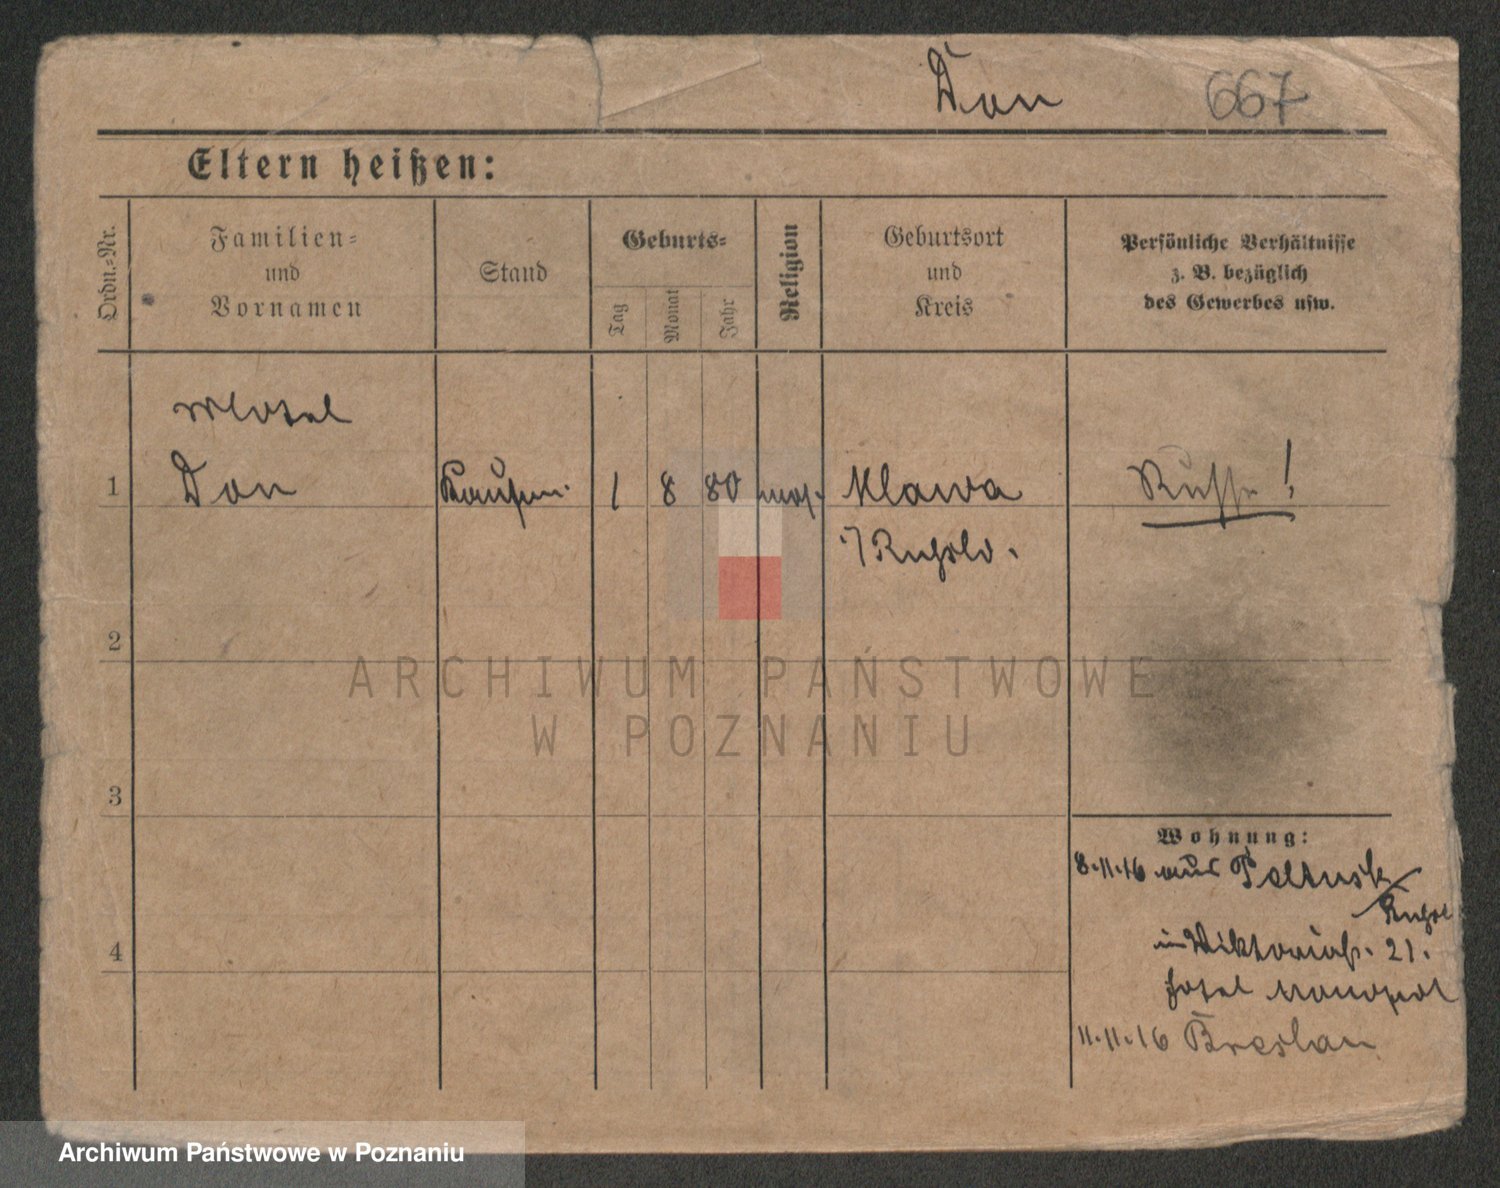 Don 667
Eltern heißen:
Ordn.-Nr.
Familien-
und
Vornamen
Stand
Geburts-
Tag
Monat
Jahr
Religion
Geburtsort
und
Kreis
Persönliche Verhältnisse
z. B. bezüglich
des Gewerbes usw.
1 Don Kaufm. 1 8 80 mos. Mlawa Russe!
i/ Russld.
2
3
4
Wohnung:
8.11.16 aus Pultusk
Russl
in Viktoriastr. 21.
Hotel Monopol
11.11.16 Breslau
ARCHIWUM PAŃSTWOWE
W POZNANIU
Archiwum Państwowe w Poznaniu